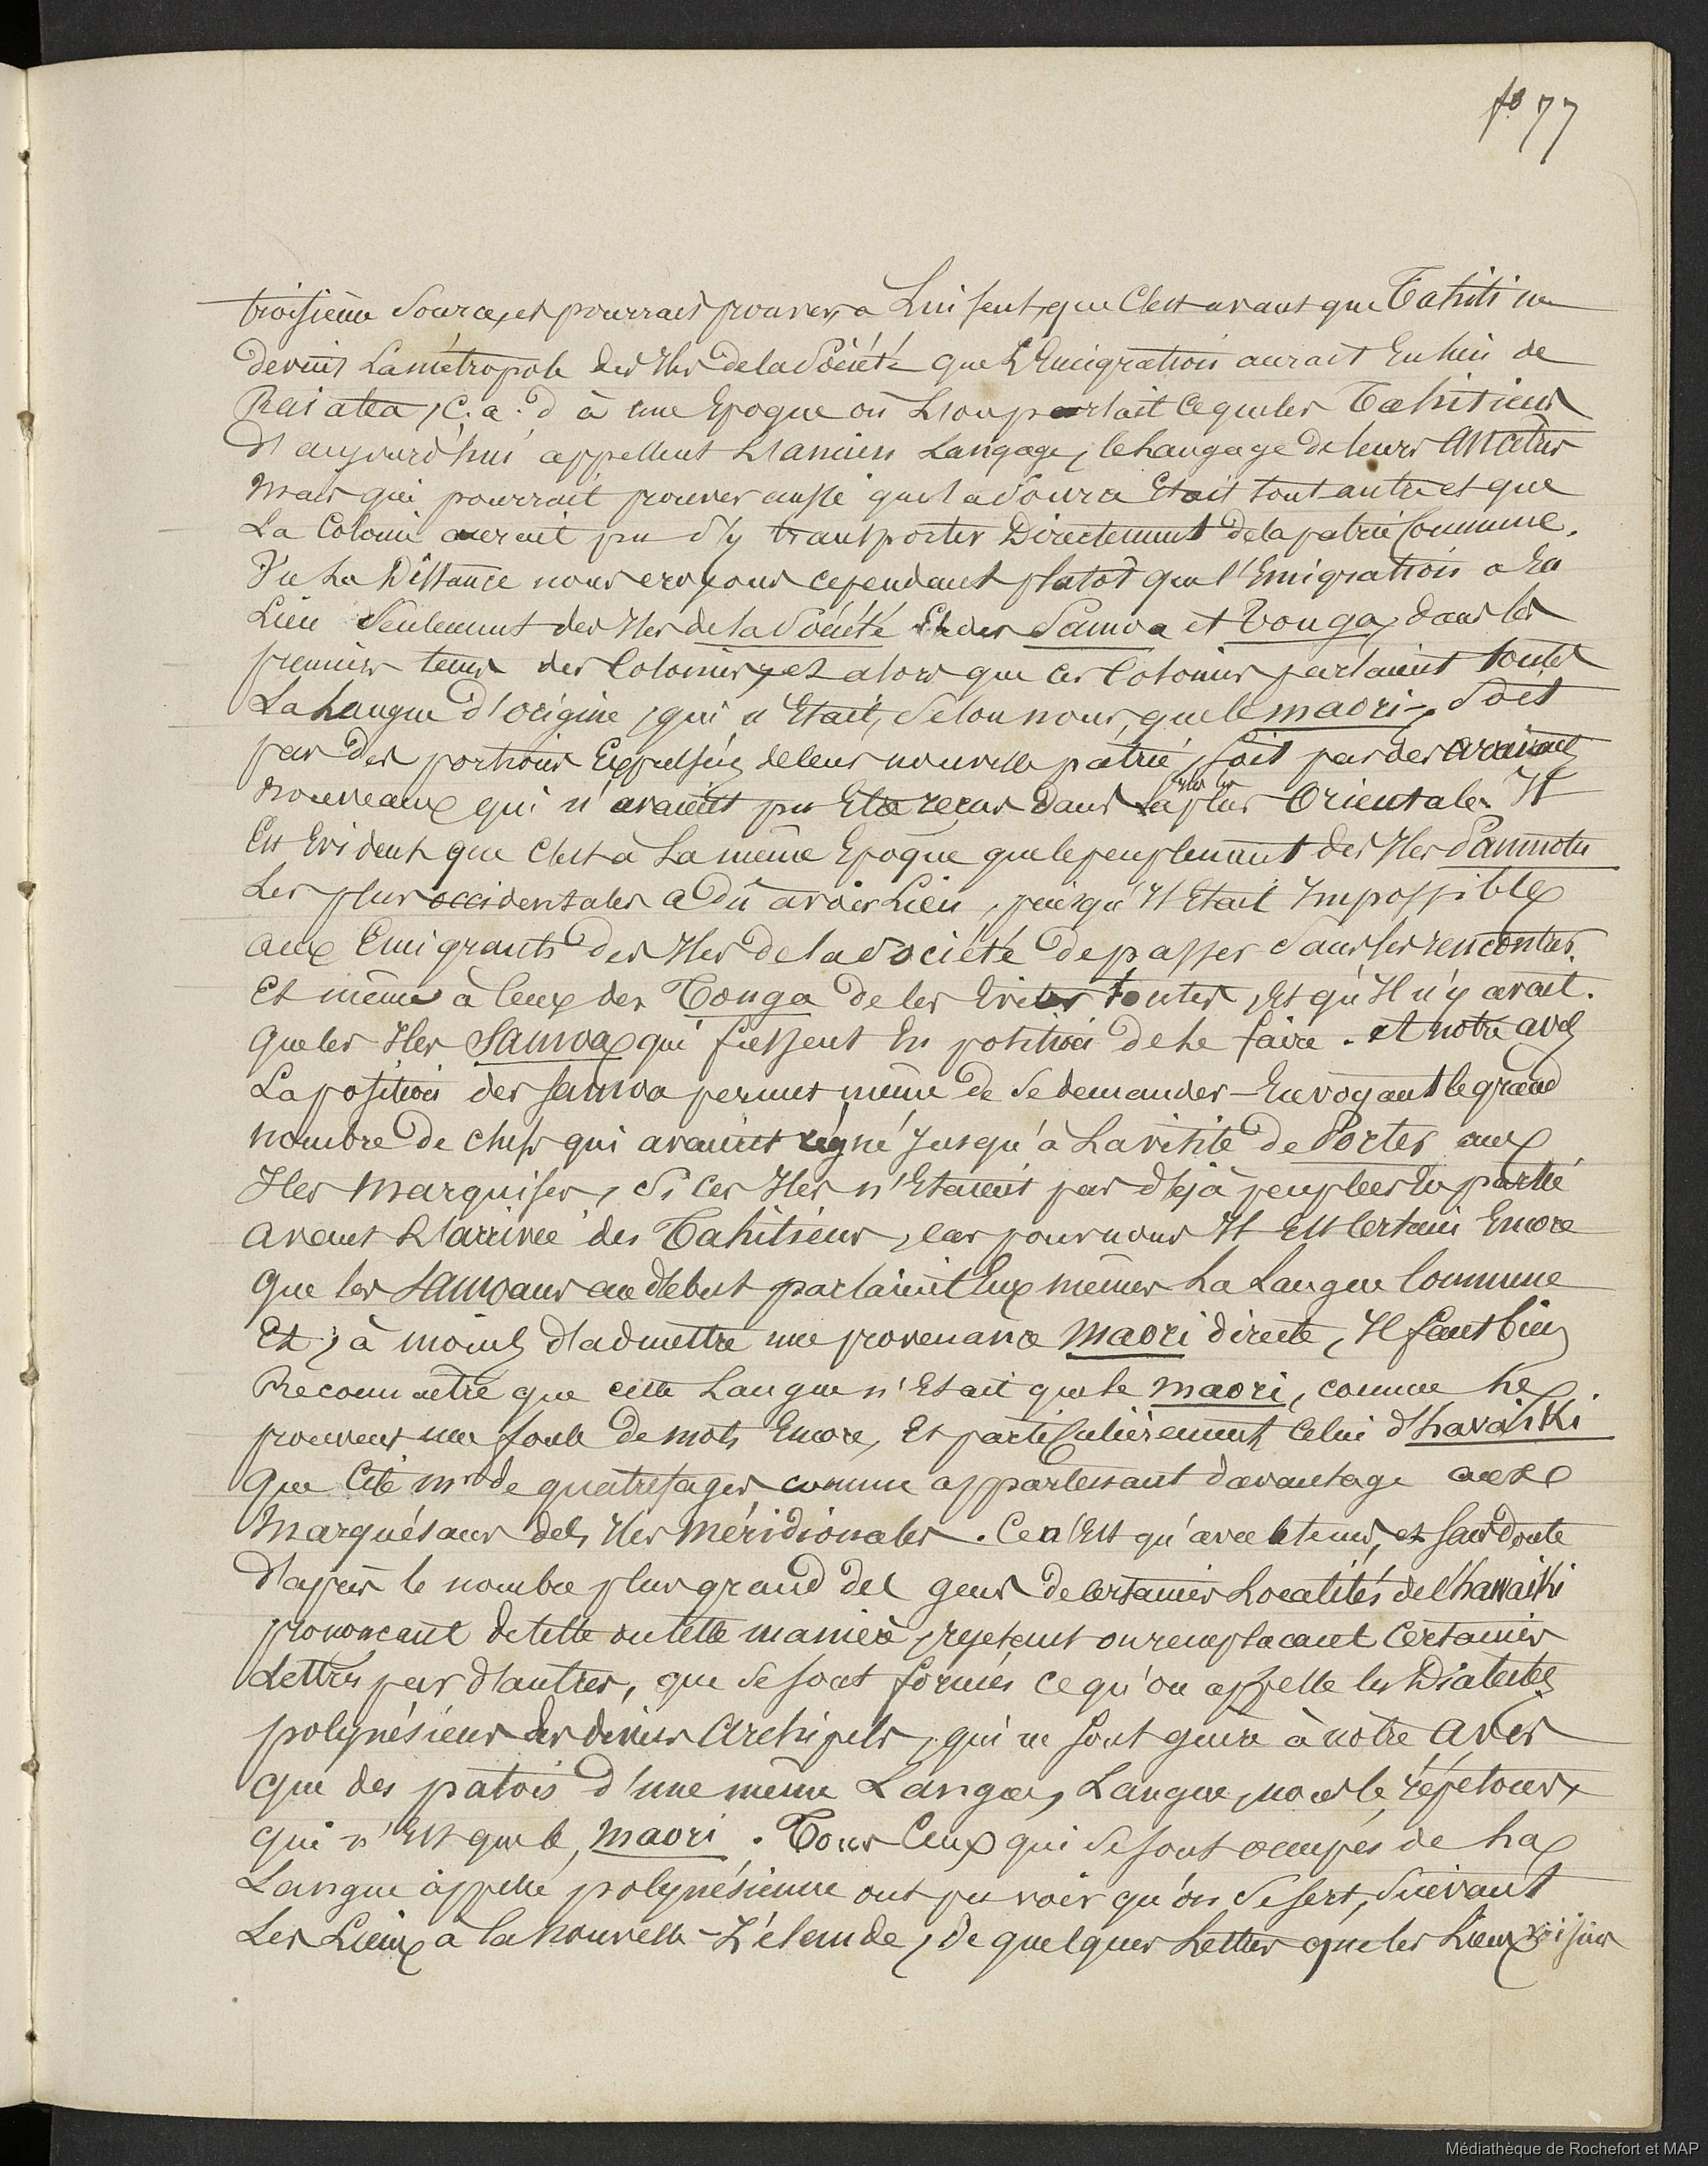 fo 77
troisième source, et pourrait prouver, à lui seul, que c'est avant que Tahiti ne
devint la métropole des Iles de la Société que l'Emigration aurait eu lieu de
Raiatea, c.a.d à une Epoque où l'on parlait ce que les Tahitiens
d'aujourd'hui appellent l'ancien langage, le langage de leurs ancêtres
mais qui pourrait prouver aussi que la source Etait tout autre et que
la Colonie aurait pu s'y transporter Directement de la patrie Commune.
Vu la Distance nous croyons cependant plutôt que l'Emigration a Eu
Lieu Seulement des Iles de la Société Et des Samoa et Tonga, dans les
premiers tems des Colonies, et alors que ces Colonies parlaient toutes
La Langue d'origine, qui n'Etait, selon nous, que le maori -, soit
par des portions Expulsées de leur nouvelle patrie, soit par des arrivants
nouveaux qui n'avaient pu Etre reçus dans les Iles les plus Orientales. Il
Est Evident que c'est à la même Epoque que le peuplement des Iles Paumotu
Les plus occidentales a dû avoir Lieu, puisqu'Il Etait Impossible
aux Emigrants des Iles de la Société de passer sans les rencontrer.
Et même à Ceux des Tonga de les Eviter toutes, Et qu'Il n'y avait
que les Iles Samoa qui fussent En position de le faire. et notre avis
La position des Samoa permet même de se demander - En voyant le grand
nombre de chefs qui avaient régné Jusqu'à la visite de Porter aux
Iles Marquises, si ces Iles n'Etaient pas déjà peuplées En partie
avant L'arrivée des Tahitiens, car pour nous Il Est Certain Encore
que les Samoans au début parlaient Eux mêmes La Langue Commune
Et, à moins d'admettre une provenance maori directe, Il faut bien
Reconnaitre que cette Langue n'Etait que le maori, comme le
prouvent une foule de mots Encore, Et particulièrement Celui d'havaïki
que Cite mr de quatrefages comme appartenant davantage aux
Marquésans des Iles Méridionales. Ce n'Est qu'avec le tems, et sans doute
d'après le nombre plus grand des gens de certaines Localités de l'hawaiki
prononcant de telle ou telle manière, rejetant ou remplacant Certaines
Lettres par d'autres, que se sont formés ce qu'on appelle les Dialectes
polynésiens des divers Archipels, qui ne sont guère à notre avis
que des patois d'une même Langue, Langue, nous le répétons,
qui n'Est que le maori. Tous Ceux qui se sont occupés de la
Langue appelée polynésienne ont pu voir qu'on se sert, Suivant
Les Lieux à la Nouvelle-Zélande, de quelques Lettres que les Lieux voisins
Médiathèque de Rochefort et MAP